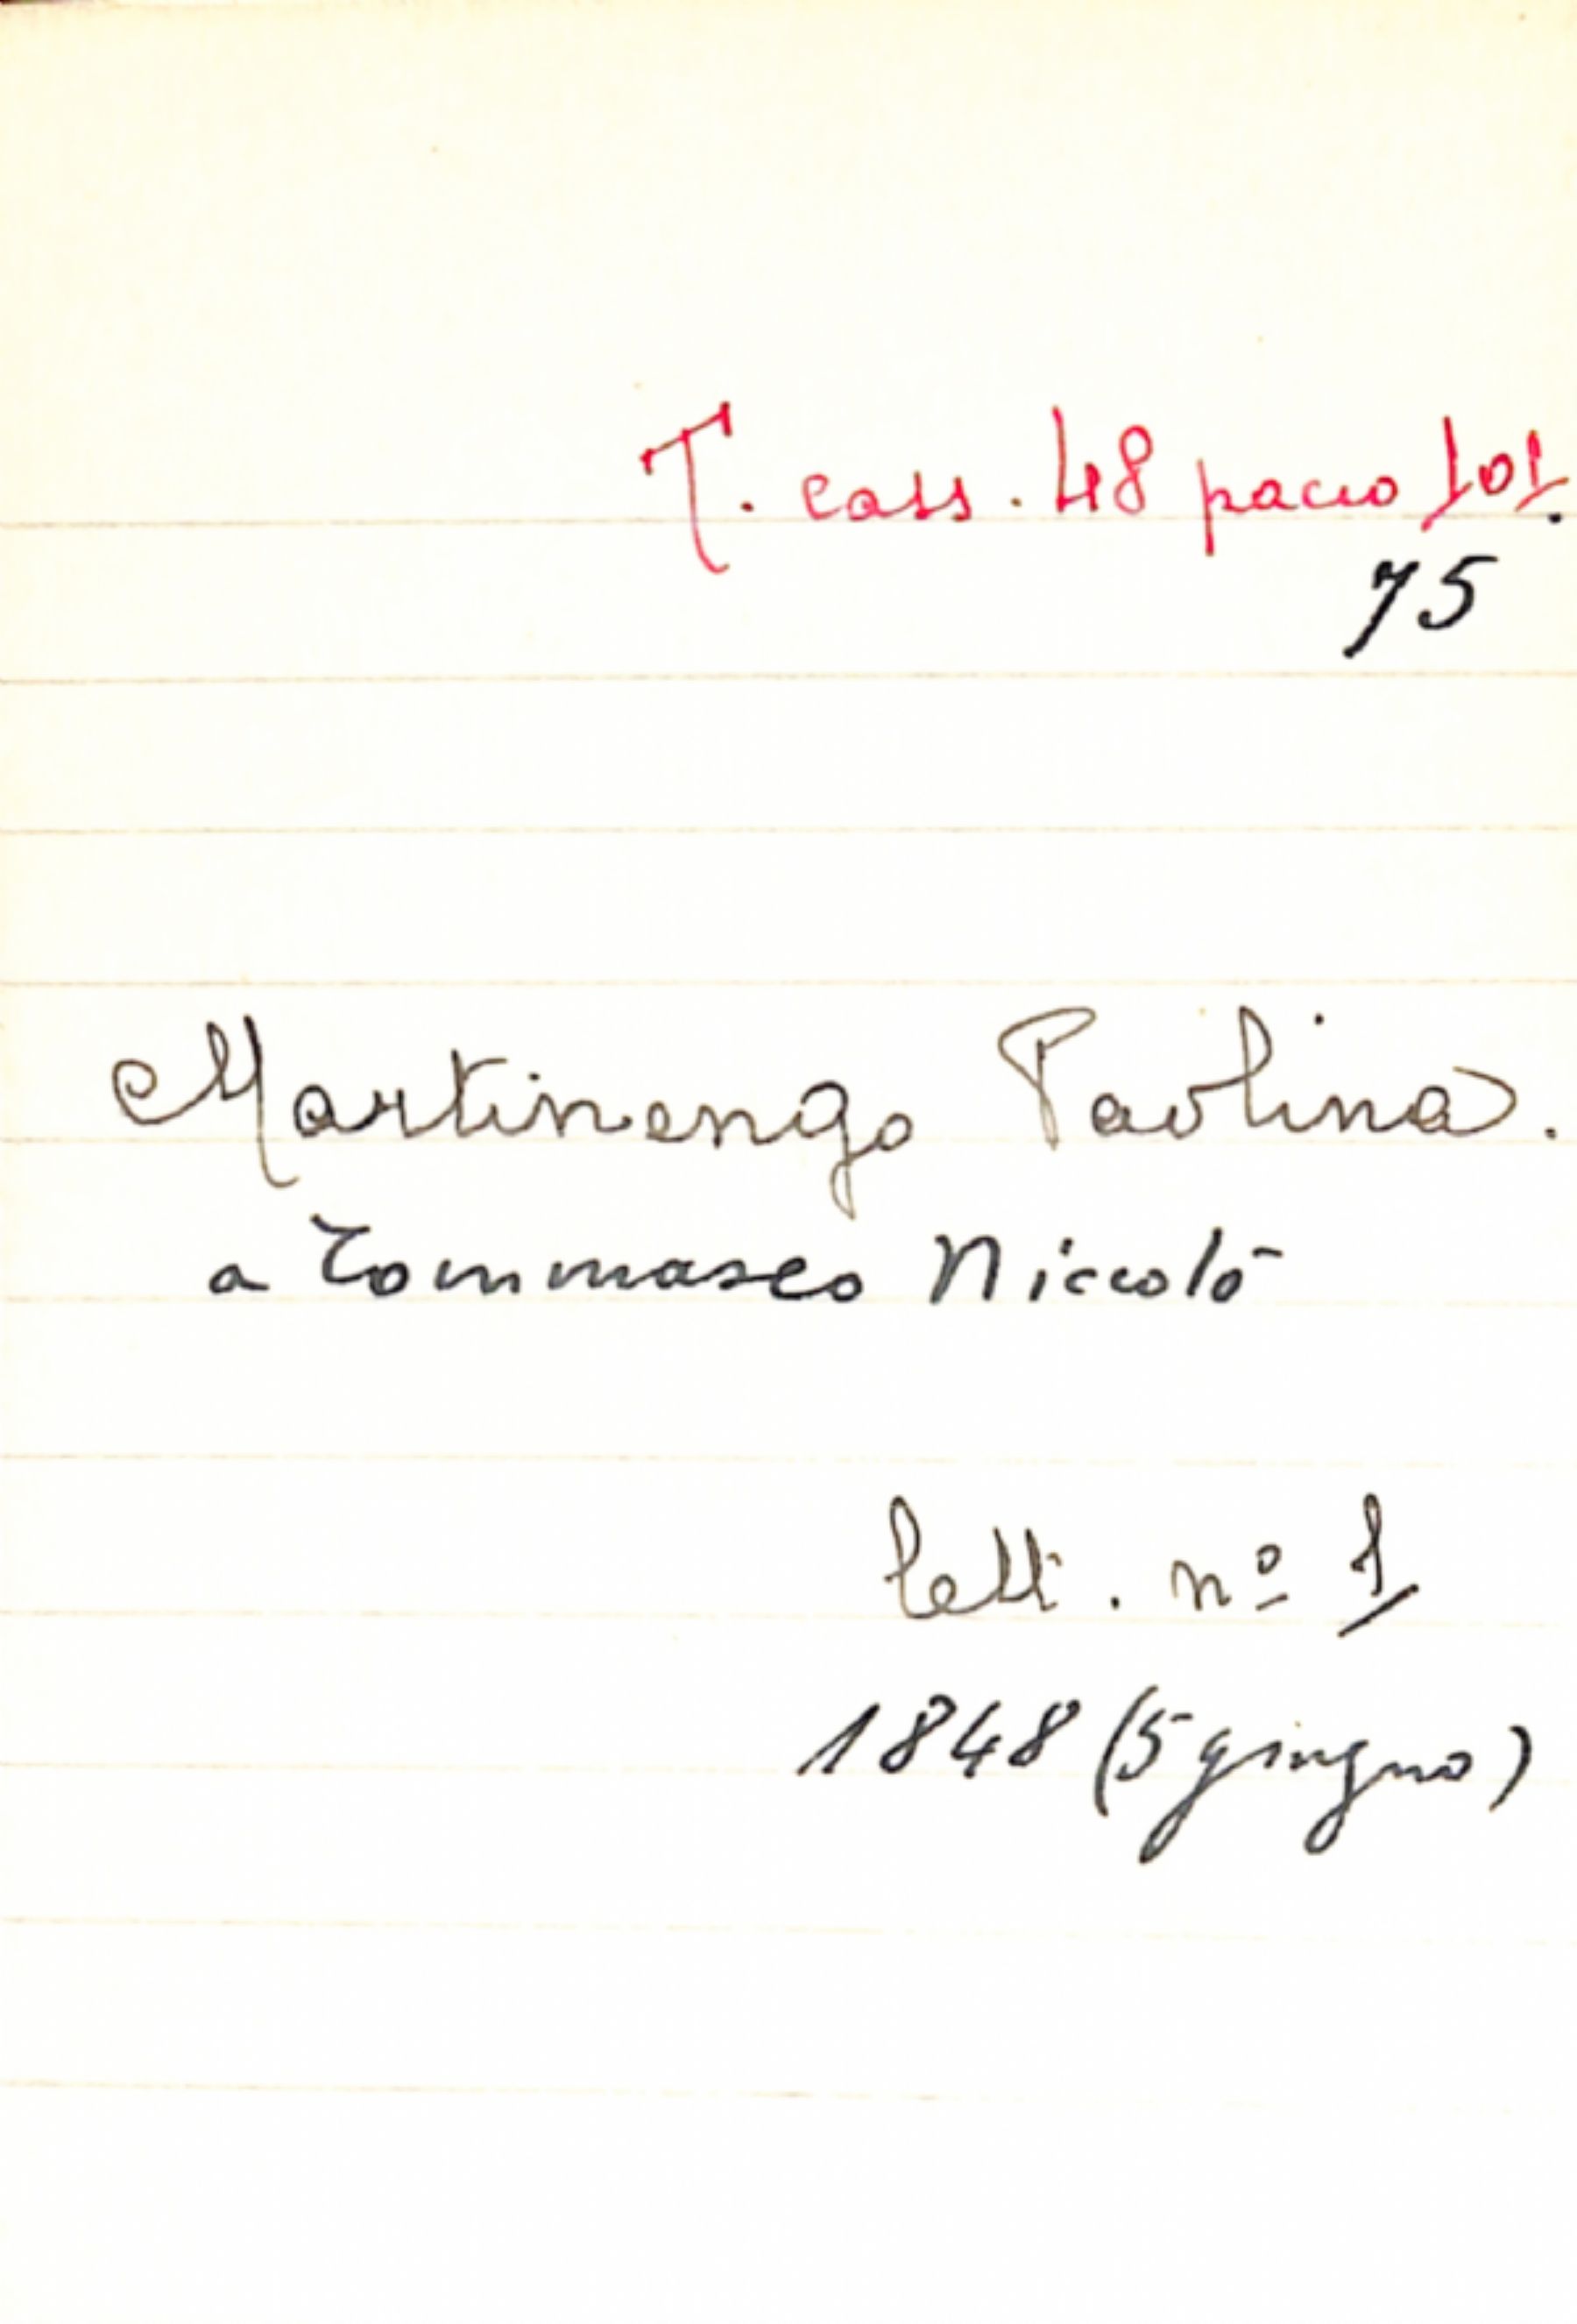 T. cass. 48 pacco 101.
75
Martinengo Paolina.
a Tommaseo Niccolò
lett. nº 1
1848 (5 giugno)